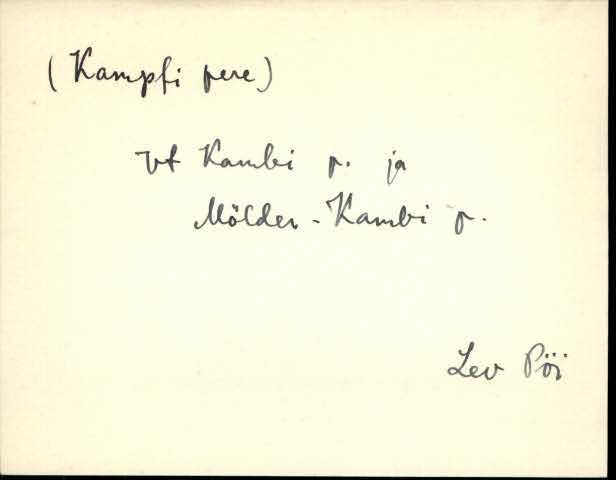 (Kampfi pere)
vt Kambi p. ja
Mölder-Kambi p.
Lev Pöi